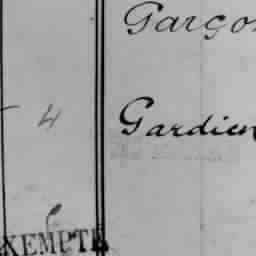 Garço
4 Gardien
EXEMPTE